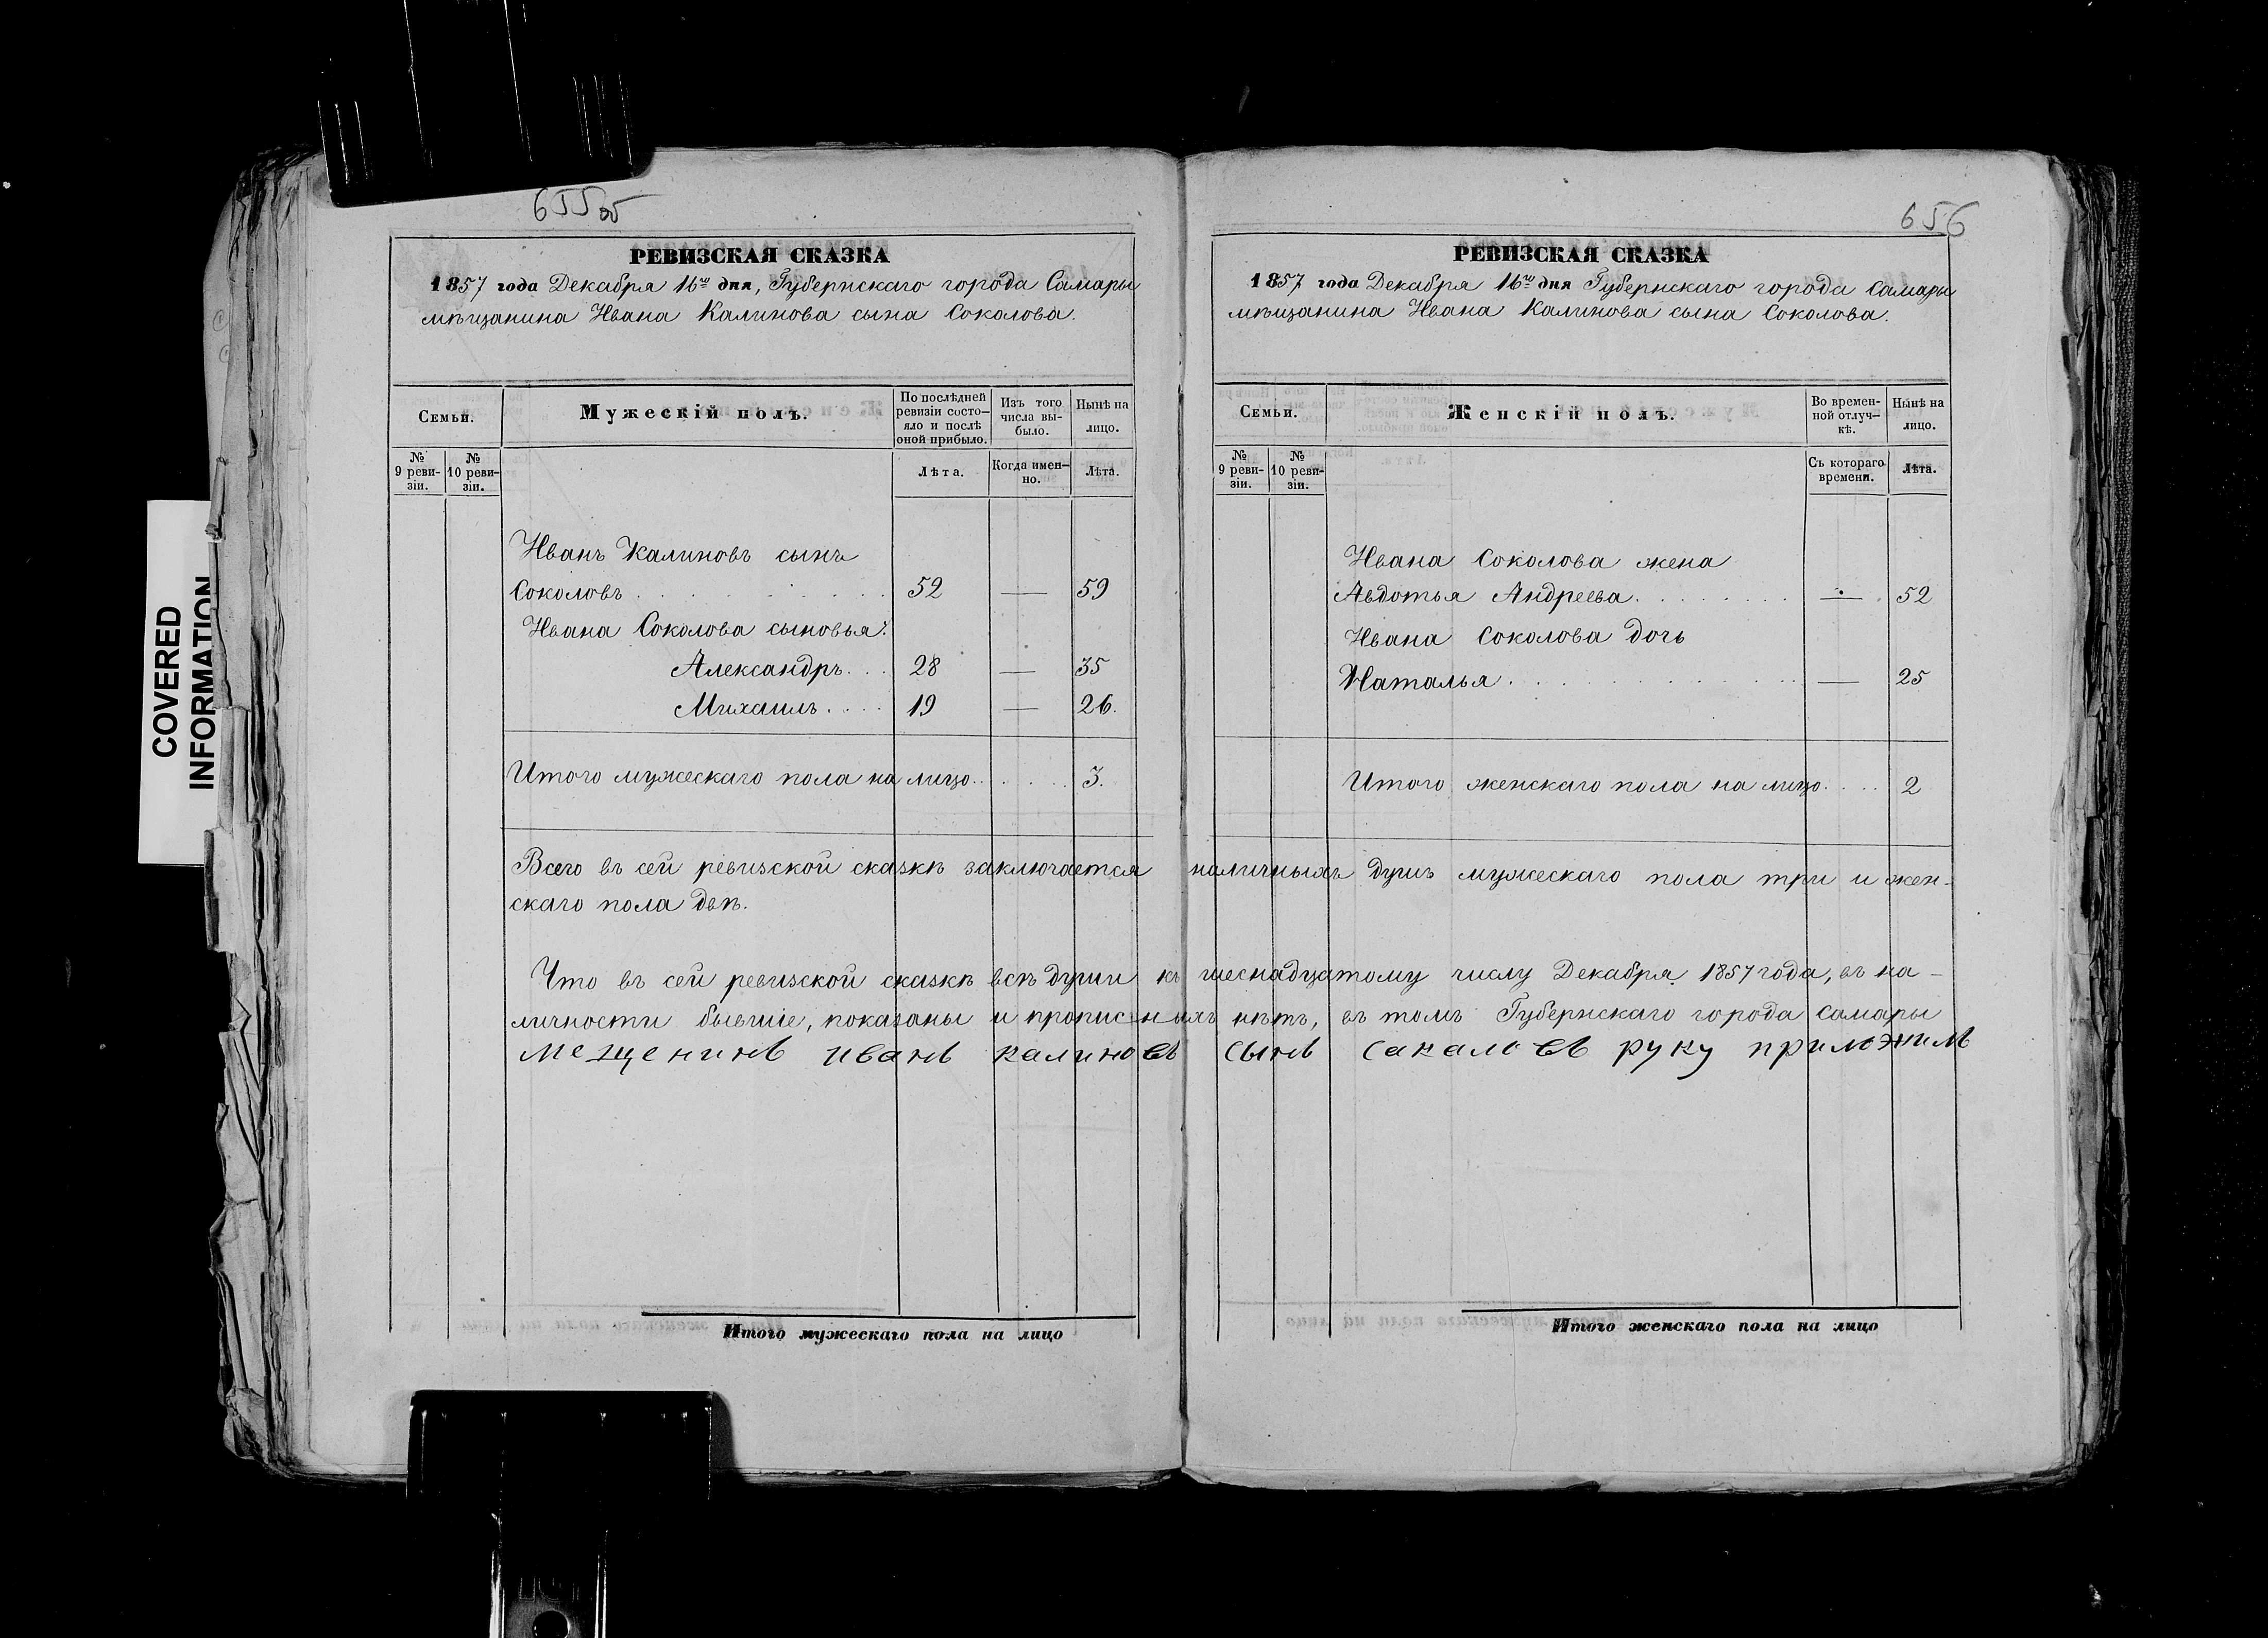 COVERED
INFORMATION
655об
РЕВИЗСКАЯ СКАЗКА
1857 года Декабря 16го дня, Губернскаго города Самары
мѣщанина Ивана Калинова сына Соколова.
Семьи.
Мужескій полъ.
По послѣдней
ревизіи состо-
яло и послѣ
оной прибыло.
Изъ того
числа вы-
было.
Нынѣ на
лицо.
№
9 реви-
зіи.
№
10 реви-
зіи.
Лѣта.
Когда имен-
но.
Лѣта.
Иванъ Калиновъ сынъ
Соколовъ . . . . . . . 52 — 59
Ивана Соколова сыновья:
Александръ. . . 28 — 35
Михаилъ. . . . 19 — 26.
Итого мужескаго пола на лицо. . . . . . 3.
656
РЕВИЗСКАЯ СКАЗКА
1857 года Декабря 16го дня Губернскаго города Самары
мѣщанина Ивана Калинова сына Соколова.
Семьи.
Женскій полъ.
Во времен-
ной отлуч-
кѣ.
Нынѣ на
лицо.
№
9 реви-
зіи.
№
10 реви-
зіи.
Съ котораго
времени.
Лѣта.
Ивана Соколова жена
Авдотья Андреева. . . . . . . — 52
Ивана Соколова дочь
Наталья. . . . . . . . . . . — 25
Итого женскаго пола на лицо. . . . 2
Всего въ сей ревизской сказкѣ заключается наличныхъ душъ мужескаго пола три и жен-
скаго пола двѣ.
Что въ сей ревизской сказкѣ всѣ души къ шеснадцатому числу Декабря 1857 года, въ на-
личности бывшіе, показаны и прописныхъ нѣтъ, въ томъ Губернскаго города Самары
мещенинъ иванъ калиновъ сынъ сакаловъ руку приложилъ
Итого мужескаго пола на лицо
Итого женскаго пола на лицо